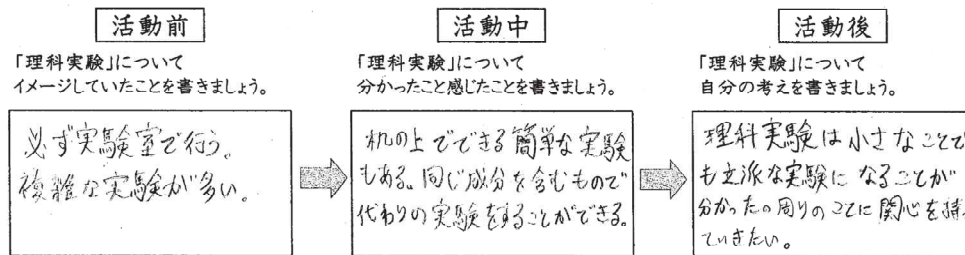 活動前
「理科実験」について
イメージしていたことを書きましょう。
必ず実験室で行う。
複雑な実験が多い。
活動中
「理科実験」について
分かったこと感じたことを書きましょう。
机の上でできる簡単な実験
もある。同じ成分を含むもので
代わりの実験をすることができる。
活動後
「理科実験」について
自分の考えを書きましょう。
理科実験は小さなことで
も立派な実験になることが
分かったの周りのことに関心を持っ
ていきたい。